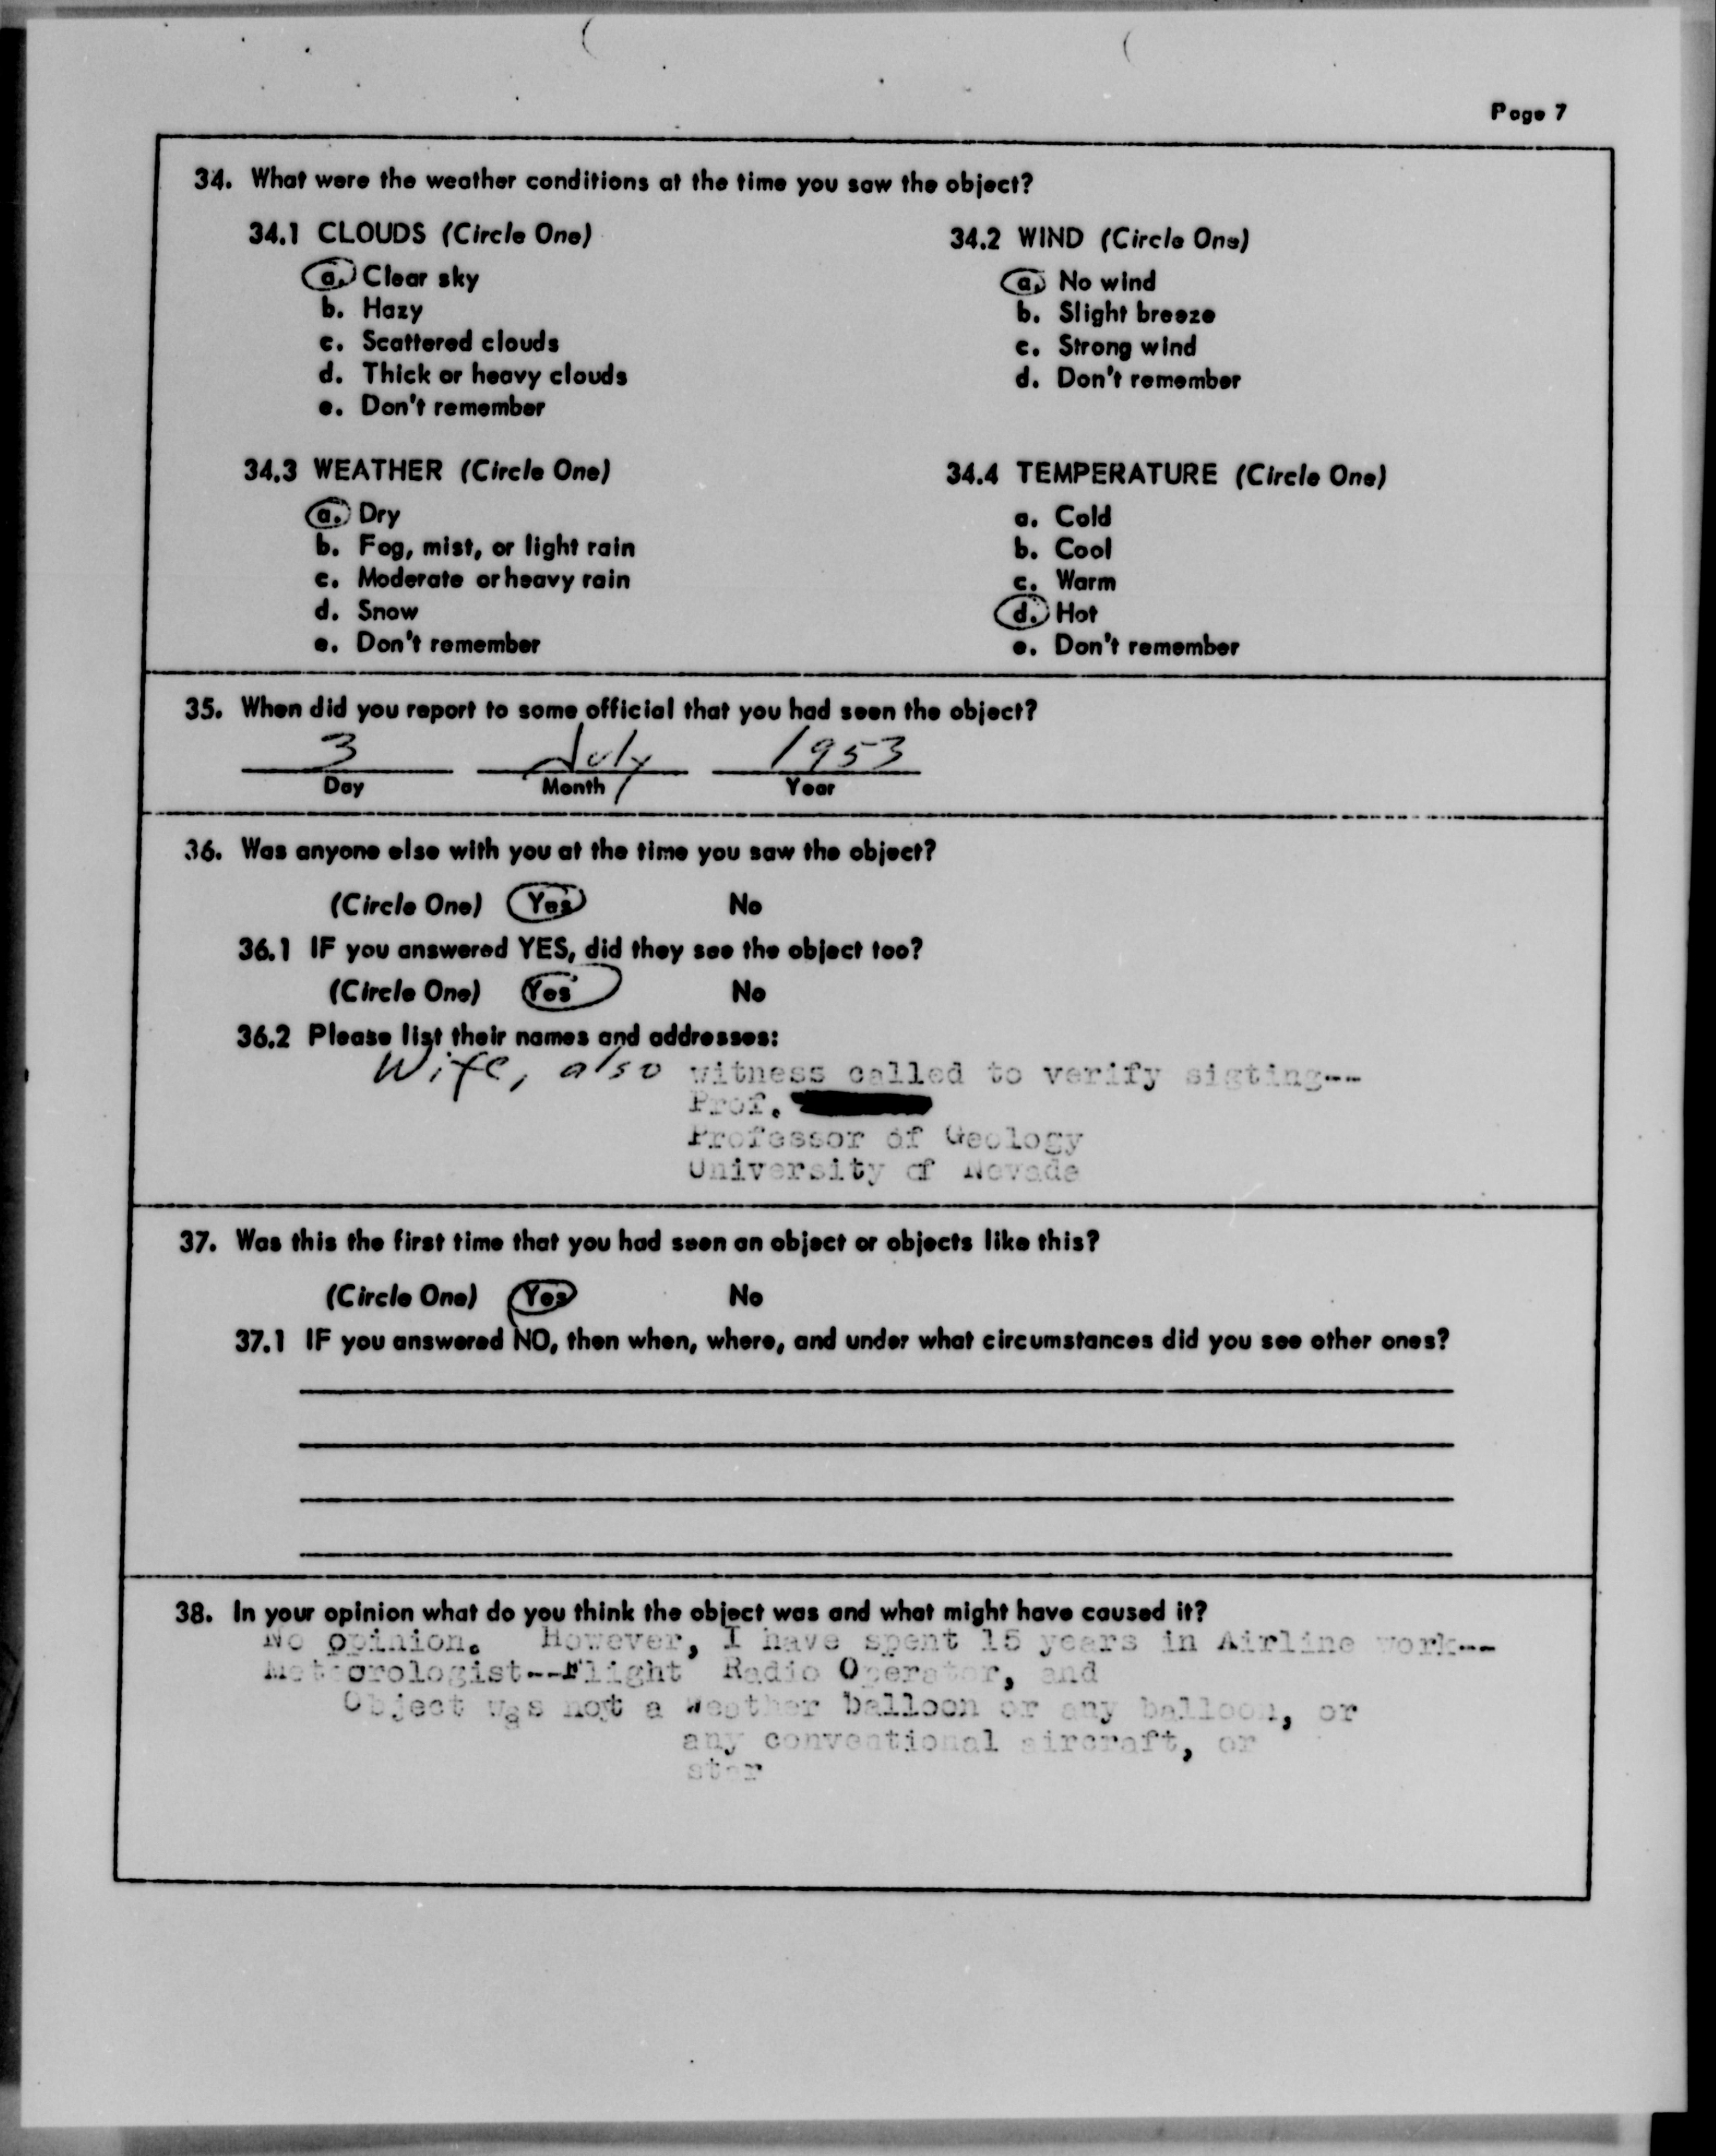 Page 7
34. What were the weather conditions at the time you saw the object?
34.1 CLOUDS (Circle One)
a. Clear sky
b. Hazy
c. Scattered clouds
d. Thick or heavy clouds
e. Don't remember
34.2 WIND (Circle One)
a. No wind
b. Slight breeze
c. Strong wind
d. Don't remember
34.3 WEATHER (Circle One)
a. Dry
b. Fog, mist, or light rain
c. Moderate or heavy rain
d. Snow
e. Don't remember
34.4 TEMPERATURE (Circle One)
a. Cold
b. Cool
c. Warm
d. Hot
e. Don't remember
35. When did you report to some official that you had seen the object?
3 July 1953
Day Month Year
36. Was anyone else with you at the time you saw the object?
(Circle One) Yes No
36.1 IF you answered YES, did they see the object too?
(Circle One) Yes No
36.2 Please list their names and addresses:
Wife, also witness called to verify sigting--
Prof.
Professor of Geology
University of Nevade
37. Was this the first time that you had seen an object or objects like this?
(Circle One) Yes No
37.1 IF you answered NO, then when, where, and under what circumstances did you see other ones?
38. In your opinion what do you think the object was and what might have caused it?
No opinion. However, I have spent 15 years in Airline work--
Meteorologist--Flight Radio Operator, and
Object was not a weather balloon or any balloon, or
any conventional aircraft, or
star